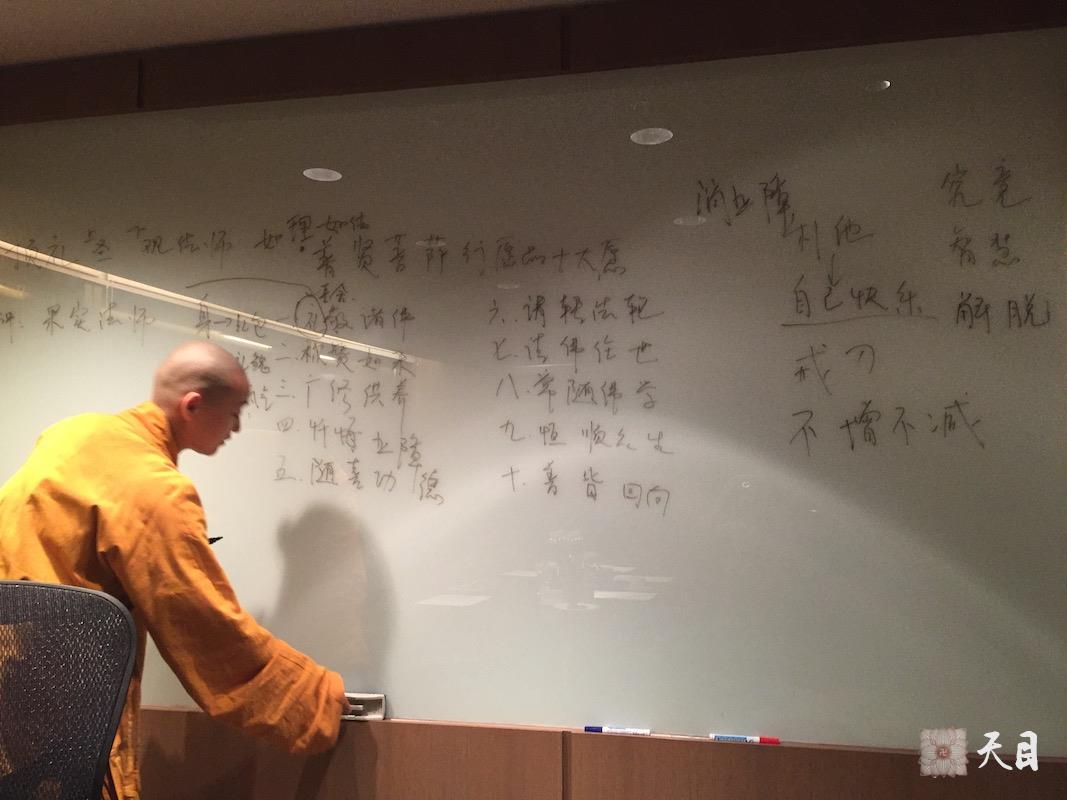 理 如法
顶礼上圣下观法师 如 普贤菩萨行愿品十大愿
果实法师
身→礼包
一.礼敬诸佛
二.称赞如来
三.广修供养
四.忏悔业障
五.随喜功德
六.请转法轮
七.请佛住世
八.常随佛学
九.恒顺众生
十.普皆回向
消业障
利他
自己快乐
戒
不增不减
究竟
智慧
解脱
天目